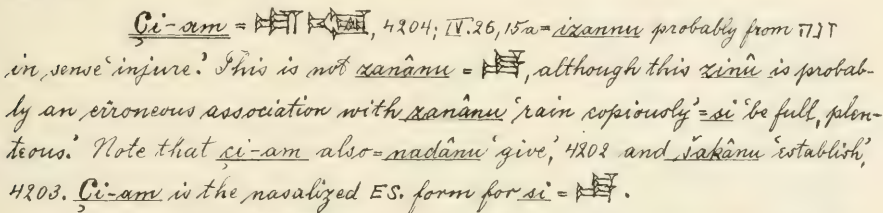 Çi-am = 𒍢 𒀀𒀭, 4204; IV. 26, 15a = izannu probably from זנה
in sense 'injure.' This is not zanânu = 𒋛, although this zinû is probab-
ly an erroneous association with zanânu 'rain copiously' = si 'be full, plen-
teous.' Note that çi-am also = nadânu 'give,' 4202 and šakânu 'establish,'
4203. Çi-am is the nasalized ES. form for si = 𒋛.